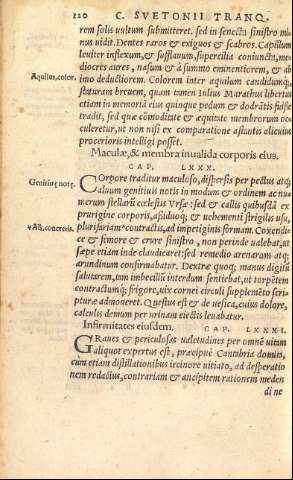 120 C. SVETONII TRANQ.
rem solis uultum submitteret. sed in senecta sinistro mi-
nus uidit. Dentes raros & exiguos & scabros. Capillum
leuiter inflexum, & sufflauum, supercilia coniuncta, me-
diocres aures, nasum & à summo eminentiorem, & ab
Aquilus, color. imo deductiorem. Colorem inter aquilum candidumq́;
staturam breuem, quam tamen Iulius Marathus libertus
etiam in memoriã eius quinque pedum & dodrãtis fuisse
tradit, sed quæ cõmoditate & æquitate membrorum oc-
culeretur, ut non nisi ex comparatione astantis alicuius
procerioris intelligi posset.
Maculæ, & membra inualida corporis eius.
CAP. LXXX.
Genitiuę notę. Corpore traditur maculoso, dispersis per pectus atq;
aluum genitiuis notis in modum & ordinem ac nu-
merum stellarũ cœlestis Vrsæ: sed & callis quibusdã ex
prurigine corporis, assiduoq́; & uehementi strigilis usu,
Alb. concretis. plurifariam contractis, ad impetiginis formam. Coxendi-
ce & femore & crure sinistro, non perinde ualebat, ut
sæpe etiam inde claudicaret: sed remedio arenarum atq;
arundinum confirmabatur. Dextræ quoq; manus digitũ
salutarem, tam imbecillũ interdum sentiebat, ut torpẽtem
contractumq́; frigore, uix cornei circuli supplemẽto scri-
pturæ admoueret. Questus est & de uesica, cuius dolore,
calculis demum per urinam eiectis leuabatur.
Infirmitates eiusdem. CAP. LXXXI.
Graues & periculosas ualetudines per omnẽ uitam
aliquot expertus est, præcipuè Cantabria domita,
cùm etiam distillationibus iecinore uitiato, ad desperatio-
nem redactus, contrariam & ancipitem rationem meden
di ne